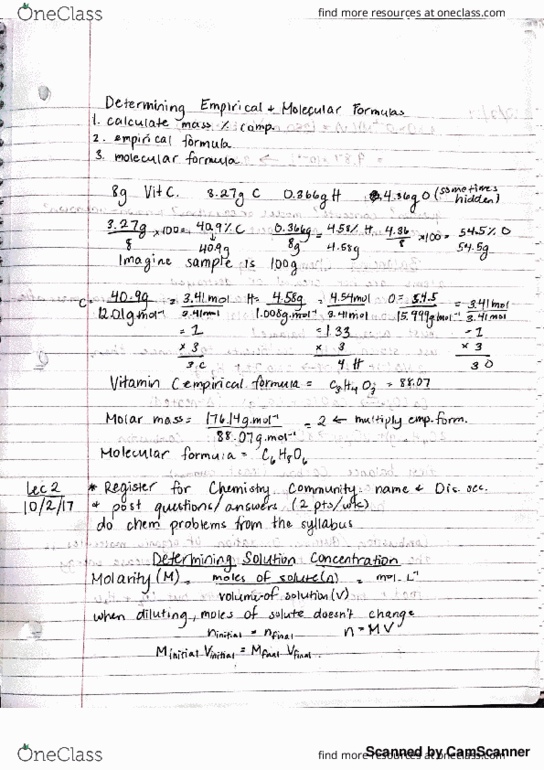 OneClass
find more resources at oneclass.com
Determining Empirical + Molecular Formulas
1. calculate mass % comp.
2. empirical formula
3. molecular formula
8g Vit C. 3.27g C 0.366g H 4.36g O (sometimes hidden)
3.27g/8 ×100 = 40.9% C 0.366g/8g = 4.58% H 4.36/8 ×100 = 54.5% O
40.9g 4.58g 54.5g
Imagine sample is 100g
C = 40.9g/12.01g mol⁻¹ = 3.41mol/3.41mol H = 4.58g/1.008g.mol⁻¹ = 4.54mol/3.41mol O = 54.5/15.999g mol⁻¹ = 3.41mol/3.41mol
= 1 = 1.33 = 1
× 3 × 3 × 3
3 C 4 H 3 O
Vitamin C empirical formula = C₃H₄O₃ = 88.07
Molar mass = 176.14g.mol⁻¹/88.07g.mol⁻¹ = 2 ← multiply emp. form.
Molecular formula = C₆H₈O₆
Lec 2 * Register for Chemistry Community name & Dis. sec.
10/2/17 + post questions/answers (2 pts/wk)
do chem problems from the syllabus
Determining Solution Concentration
Molarity (M) = moles of solute(n)/volume of solution(v) = mol.L⁻¹
when diluting, moles of solute doesn't change
n initial = n final n = MV
M initial V initial = M final V final.
Scanned by CamScanner
OneClass
find more resources at oneclass.com